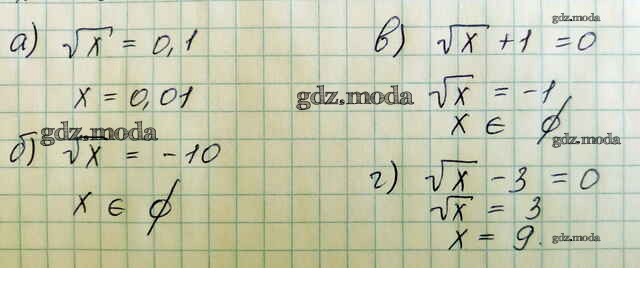 а) √x = 0,1
x = 0,01
б) √x = -10
x ∈ ∅
в) √x + 1 = 0
√x = -1
x ∈ ∅
г) √x - 3 = 0
√x = 3
x = 9.
gdz.moda
gdz.moda
gdz.moda
gdz.moda
gdz.moda